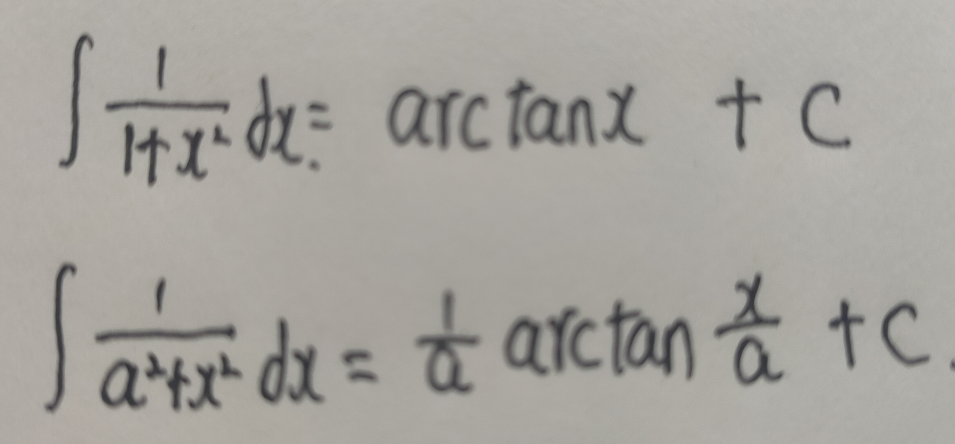 ∫ 1/(1+x²) dx = arctanx + C
∫ 1/(a²+x²) dx = 1/a arctan x/a + C.